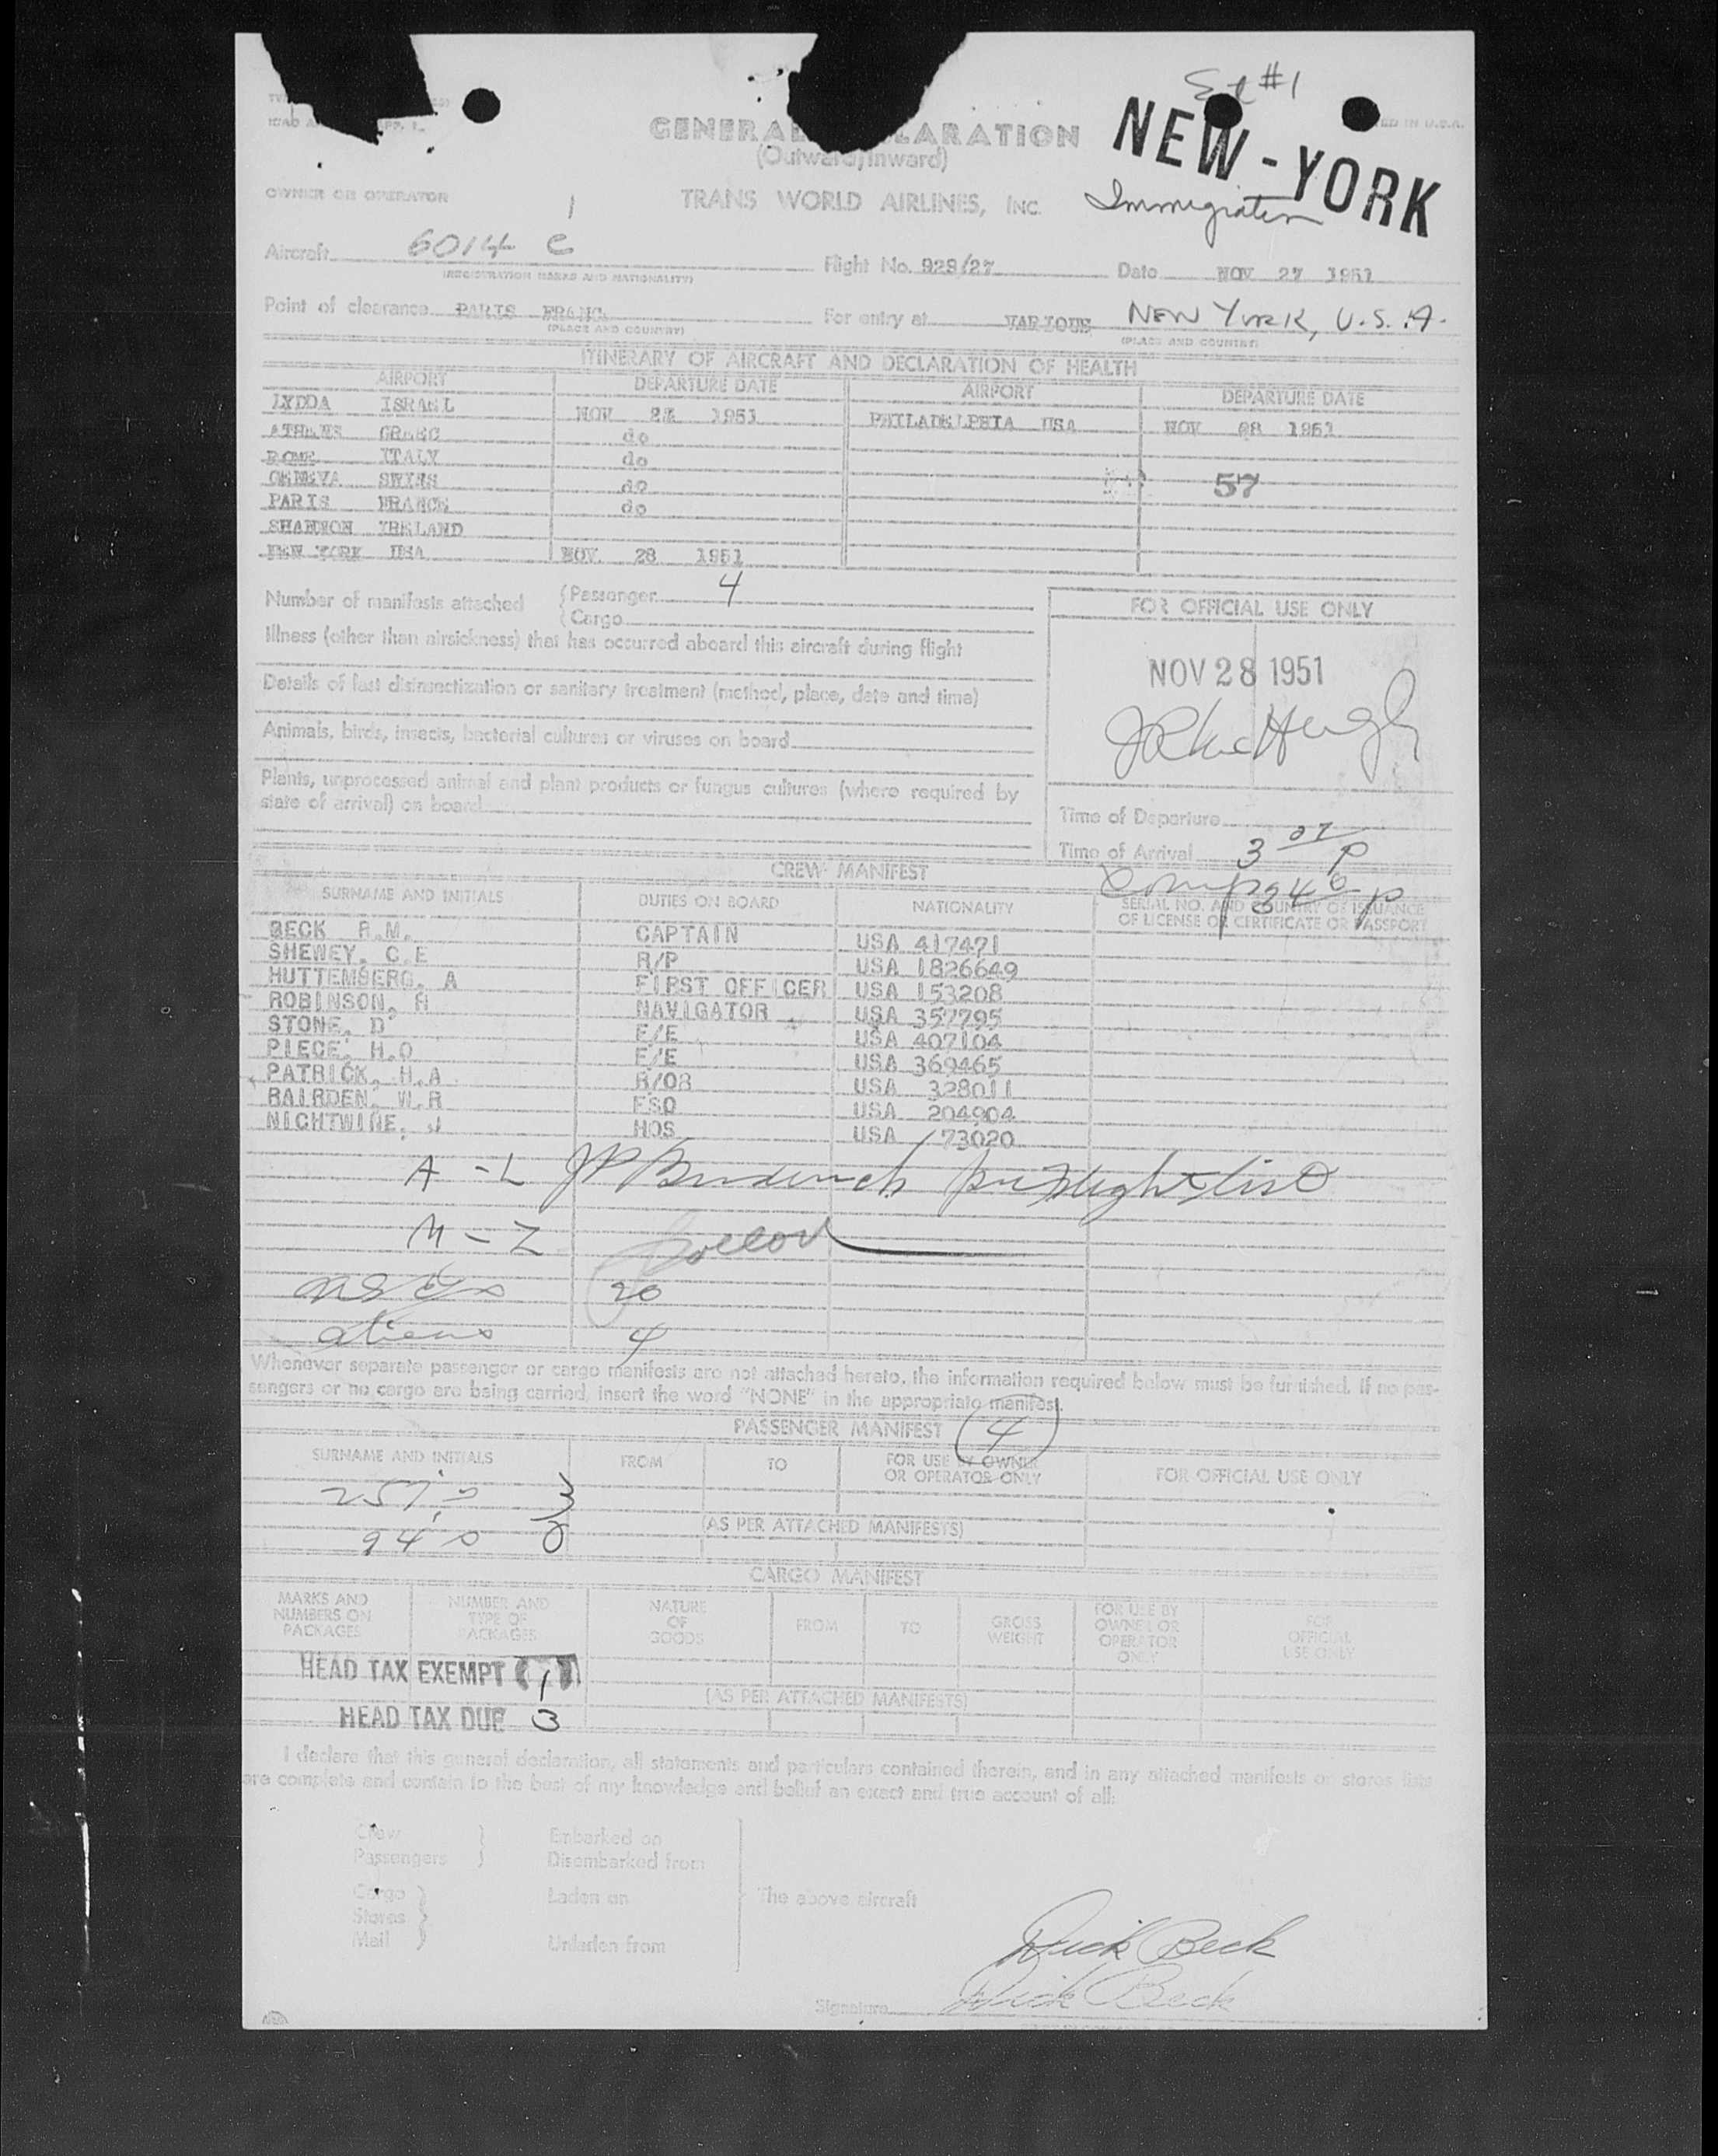 Sd #1
NEW-YORK
GENERAL DECLARATION
(Outward/Inward)
OWNER OR OPERATOR
TRANS WORLD AIRLINES, INC.
Immigration
Aircraft 6014 C Flight No. 929/27 Date NOV 27 1951
(REGISTRATION MARKS AND NATIONALITY)
Point of clearance PARIS FRANC For entry at VARIOUS NEW YORK, U.S.A.
(PLACE AND COUNTRY) (PLACE AND COUNTRY)
ITINERARY OF AIRCRAFT AND DECLARATION OF HEALTH
AIRPORT DEPARTURE DATE AIRPORT DEPARTURE DATE
LYDDA ISRAEL NOV 27 1951 PHILADELPHIA USA NOV 28 1951
ATHENS GREEC do
ROME ITALY do
GENEVA SWISS do 57
PARIS FRANCE do
SHANNON IRELAND
NEW YORK USA NOV. 28 1951
Number of manifests attached (Passenger 4
(Cargo
FOR OFFICIAL USE ONLY
Illness (other than airsickness) that has occurred aboard this aircraft during flight
NOV 28 1951
Details of last disinsectization or sanitary treatment (method, place, date and time)
Animals, birds, insects, bacterial cultures or viruses on board
Plants, unprocessed animal and plant products or fungus cultures (where required by
state of arrival) on board
Time of Departure
Time of Arrival 3 07 P
CREW MANIFEST
SURNAME AND INITIALS DUTIES ON BOARD NATIONALITY SERIAL NO. AND COUNTRY OF ISSUANCE
OF LICENSE OR CERTIFICATE OR PASSPORT
BECK R.M. CAPTAIN USA 417471
SHEWEY, C.E R/P USA 1826649
HUTTEMBERG, A FIRST OFFICER USA 153208
ROBINSON, R NAVIGATOR USA 357795
STONE, D F/E USA 407104
PIECE, H.O F/E USA 369465
PATRICK, H.A R/OR USA 328011
BAIRDEN, W.R FSO USA 204904
NIGHTWINE, J HOS USA 73020
A - L
M - Z
20
aliens 4
Whenever separate passenger or cargo manifests are not attached hereto, the information required below must be furnished. If no pas-
sengers or no cargo are being carried, insert the word "NONE" in the appropriate manifest.
PASSENGER MANIFEST 4
SURNAME AND INITIALS FROM TO FOR USE BY OWNER
OR OPERATOR ONLY FOR OFFICIAL USE ONLY
257's 3
(AS PER ATTACHED MANIFESTS)
CARGO MANIFEST
MARKS AND
NUMBERS ON
PACKAGES NUMBER AND
TYPE OF
PACKAGES NATURE
OF
GOODS FROM TO GROSS
WEIGHT FOR USE BY
OWNER OR
OPERATOR
ONLY FOR
OFFICIAL
USE ONLY
HEAD TAX EXEMPT 1
(AS PER ATTACHED MANIFESTS)
HEAD TAX DUE 3
I declare that this general declaration, all statements and particulars contained therein, and in any attached manifests or stores lists
are complete and contain to the best of my knowledge and belief an exact and true account of all:
Crew } Embarked on
Passengers } Disembarked from
Cargo } Laden on } The above aircraft
Stores }
Mail } Unladen from
Dick Beck
Signature Dick Beck